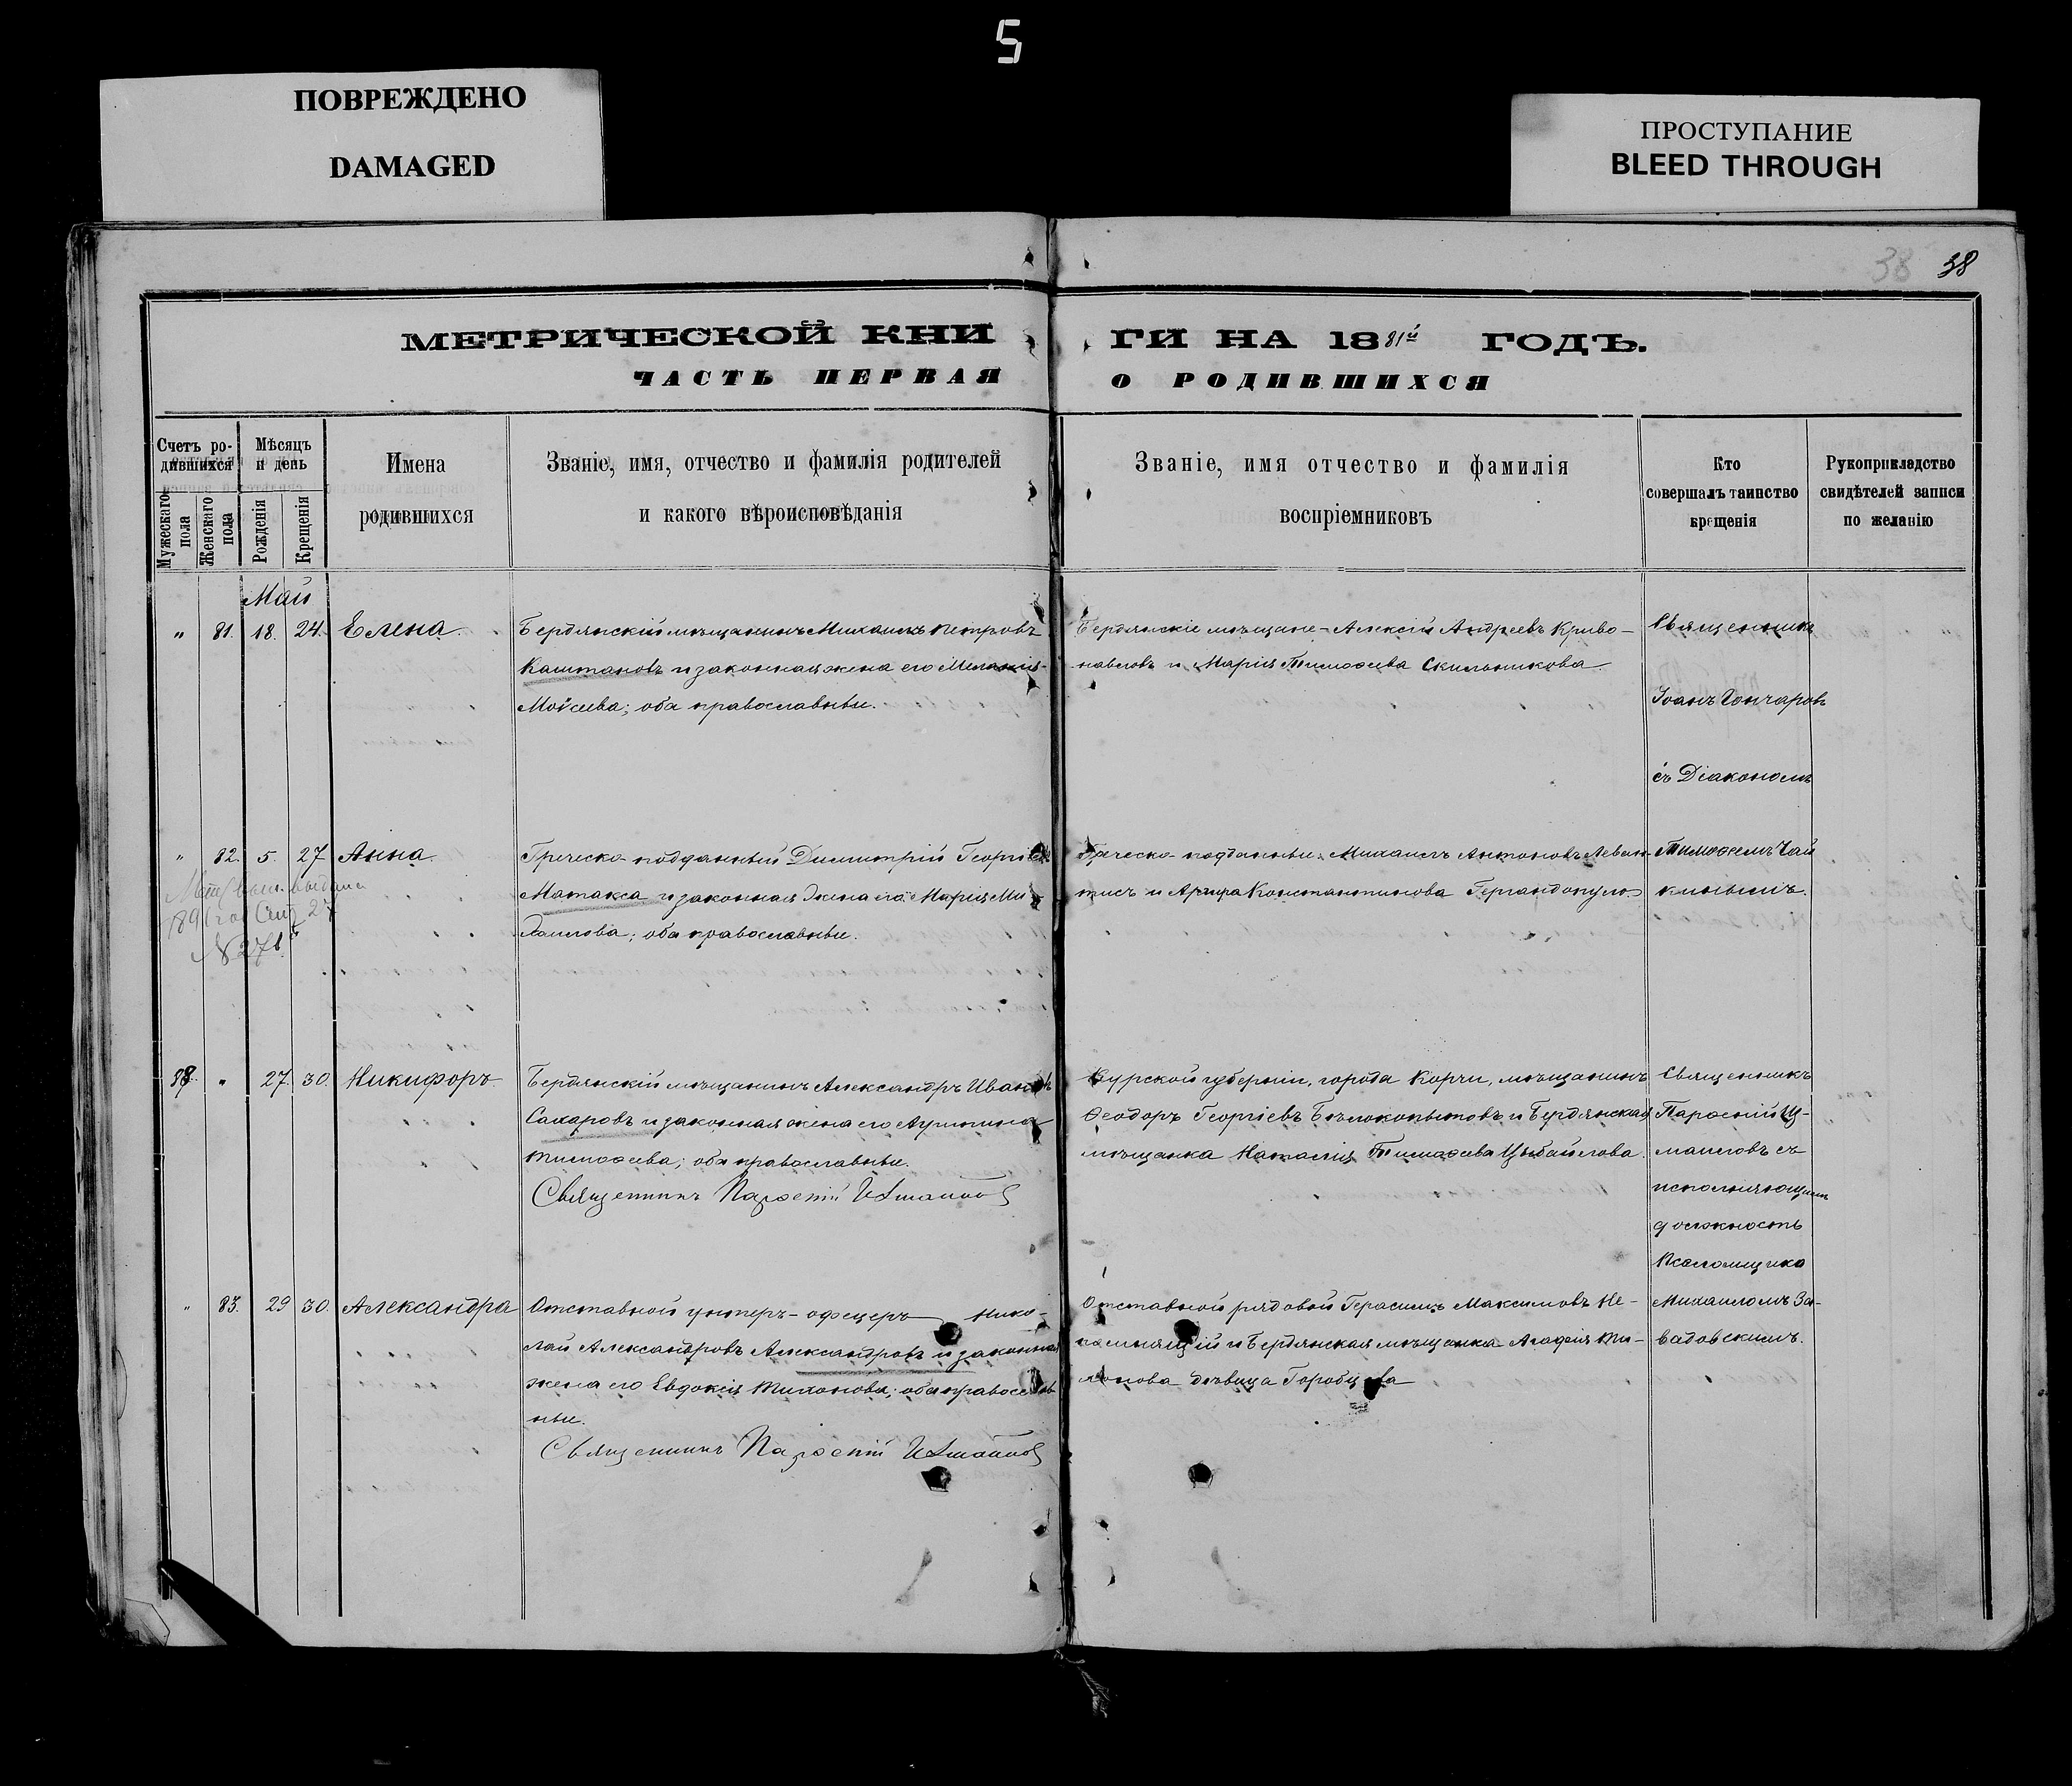 5
ПОВРЕЖДЕНО
DAMAGED
ПРОСТУПАНИЕ
BLEED THROUGH
38 38
МЕТРИЧЕСКОЙ КНИ ГИ НА 1881й ГОДЪ.
ЧАСТЬ ПЕРВАЯ О РОДИВШИХСЯ
Счетъ ро-
дившихся
Мужескаго
пола
Женскаго
пола
Мѣсяцъ
и день
Рожденія
Крещенія
Имена
родившихся
Званіе, имя, отчество и фамилія родителей
и какого вѣроисповѣданія
Званіе, имя отчество и фамилія
воспріемниковъ
Кто
совершалъ таинство
крещенія
Рукоприкладство
свидѣтелей записи
по желанію
Май
„ 81. 18. 24. Елена.
Бердянскій мѣщанинъ Михаилъ Петровъ
Каштановъ и законная жена его Меланія
Моѵсеева; оба православные.
Бердянскіе мѣщане - Алексій Андреевъ Криво-
павловъ и Марія Тимоѳеева Скильникова.
Священникъ
Іоанъ Гончаровъ
съ Діакономъ
„ 82. 5. 27 Анна.
Греческо-подданный Димитрій Георгіевъ
Матакса и законная жена его Марія Ми-
хаилова; оба православные.
Греческо-подданные: Михаилъ Антоновъ Леван-
тисъ и Аргира Константинова Гергандопуло
Тимоѳеемъ Чай
кинымъ.
выдана
27
№ 271.
38. „ 27. 30. Никифоръ.
Бердянскій мѣщанинъ Александръ Ивановъ
Сахаровъ и законная жена его Аграпина
Тимоѳеева; оба православные.
Священникъ Парѳеній Измаиловъ
Курской губерніи, города Корчи, мѣщанинъ
Ѳеодоръ Георгіевъ Бѣлокопытовъ и Бердянская
мѣщанка Наталія Тимоѳеева Цыбайлова.
Священникъ
Парѳеній Из-
маиловъ съ
исполняющимъ
должность
Псаломщика
„ 83. 29 30. Александра
Отставной унтеръ-офецеръ Нико-
лай Александровъ Александровъ и законная
жена его Евдокія Тихонова; оба православ
ные.
Священникъ Парѳеній Измаиловъ
Отставной рядовой Герасимъ Максимовъ Не-
помнящій и Бердянская мѣщанка Агаѳія Ти-
хонова дѣвица Горобцева
Михаиломъ За-
вадовскимъ.